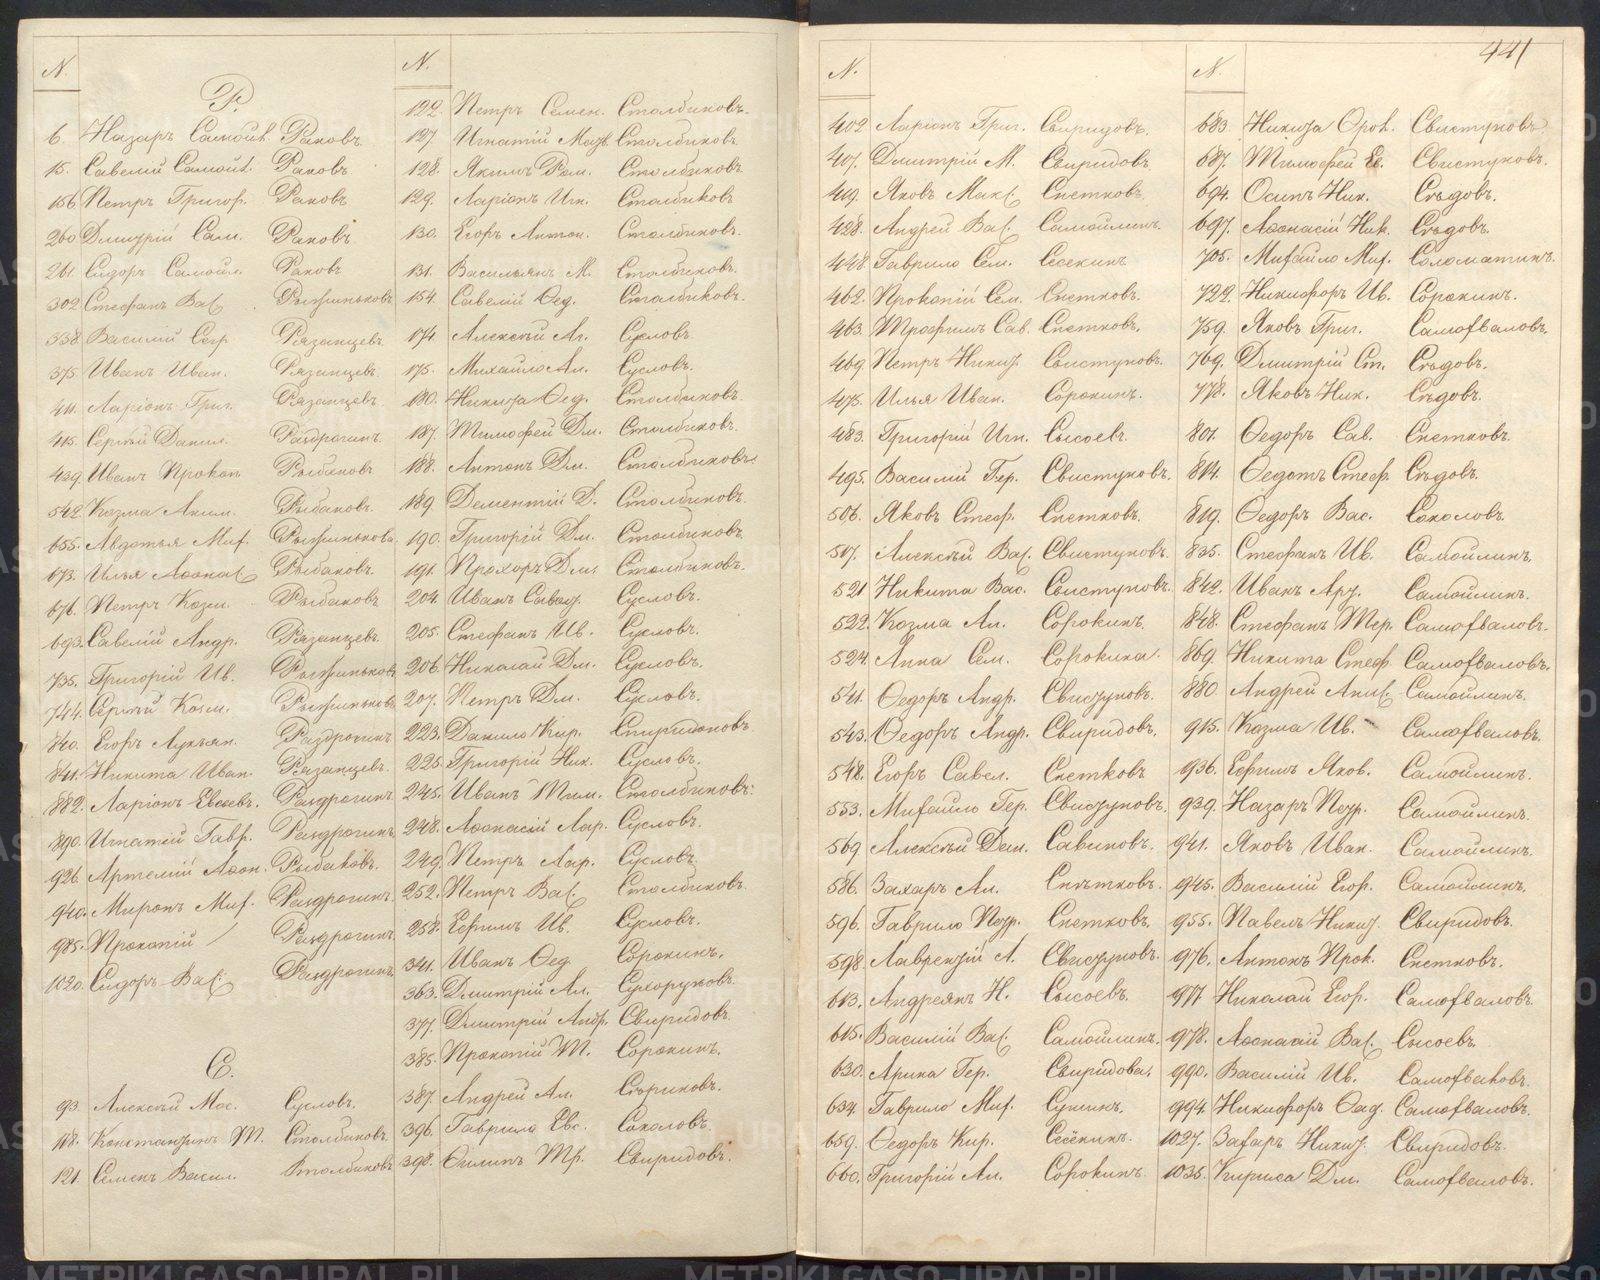 441
N.
Р.
6. Назаръ Самойл. Раковъ
15. Савелій Самойл. Раковъ
156. Петръ Григор. Раковъ
260. Дмитрій Сам. Раковъ
261. Сидоръ Самойл. Раковъ
302. Стефанъ Вас. Рыжиньковъ
338. Василій Сер. Рязанцевъ
375. Иванъ Иван. Рязанцевъ
411. Ларіонъ Григ. Рязанцевъ
415. Сергѣй Данил. Раздрогинъ
429. Иванъ Прокоп. Рыбаковъ
542. Козма Аким. Рыбаковъ
655. Авдотья Мих. Рыжинькова
673. Илья Аѳонас. Рыбаковъ
676. Петръ Козм. Рыбаковъ
693. Савелій Андр. Рязанцевъ
735. Григорій Ив. Рыжиньковъ
744. Сергѣй Козм. Рыжиньковъ
840. Егоръ Лукьян. Раздрогинъ
841. Никита Иван. Рязанцевъ
882. Ларіонъ Евсеев. Раздрогинъ
890. Игнатій Гавр. Раздрогинъ
926. Артемій Аѳон. Рыбаковъ
940. Миронъ Мих. Раздрогинъ
985. Прокопій / Раздрогинъ
1020. Сидоръ Вас. Раздрогинъ
С.
93. Алексѣй Мос. Сусловъ.
118. Константинъ М. Столбиковъ.
121. Семенъ Васил. Столбиковъ
N.
122. Петръ Семен. Столбиковъ.
127. Игнатій Матв. Столбиковъ
128. Якимъ Ром. Столбиковъ
129. Ларіонъ Игн. Столбиковъ
130. Егоръ Антон. Столбиковъ.
131. Васильянъ М. Столбиковъ.
154. Савелій Ѳед. Столбиковъ.
174. Алексѣй Ал. Сусловъ
175. Михайло Ал. Сусловъ.
180. Никита Ѳед. Столбиковъ.
187. Тимофей Дм. Столбиковъ.
188. Антонъ Дм. Столбиковъ.
189. Дементій Д. Столбиковъ.
190. Григорій Дм. Столбиковъ.
191. Прохоръ Дм. Столбиковъ.
204. Иванъ Сусловъ.
205. Стефанъ Ив. Сусловъ.
206. Николай Дм. Сусловъ.
207. Петръ Дм. Сусловъ.
223. Данило Кир. Спиридоновъ
225. Григорій Ник. Сусловъ.
245. Иванъ Тим. Столбиковъ.
248. Аѳонасій Лар. Сусловъ.
249. Петръ Лар. Сусловъ.
252. Петръ Вас. Столбиковъ.
258. Ефимъ Ив. Сусловъ.
341. Иванъ Ѳед. Сорокинъ.
363. Дмитрій Ал. Сухоруковъ.
377. Дмитрій Андр. Свиридовъ.
385. Прокопій Т. Сорокинъ.
387. Андрей Ал. Стариковъ.
396. Гаврило Евс. Соколовъ.
398. Филипъ Тр. Свиридовъ.
N.
402. Ларіонъ Григ. Свиридовъ.
407. Дмитрій М. Свиридовъ
419. Яковъ Макс. Снетковъ.
428. Андрей Вас. Самойлинъ.
448. Гаврило Сем. Сесекинъ.
462. Прокопій Сем. Снетковъ.
463. Трофимъ Сав. Снетковъ.
469. Петръ Никит. Свистуновъ.
475. Илья Иван. Сорокинъ.
483. Григорій Игн. Сысоевъ.
495. Василій Гер. Свистуновъ.
506. Яковъ Стеф. Снетковъ.
517. Алексѣй Вас. Свистуновъ.
521. Никита Вас. Свистуновъ.
522. Козма Ал. Сорокинъ.
524. Анна Сем. Сорокина.
541. Ѳедоръ Андр. Свистуновъ.
543. Ѳедоръ Андр. Свиридовъ.
548. Егоръ Савел. Снетковъ
553. Михайло Гер. Свистуновъ.
569. Алексѣй Дем. Савиновъ.
586. Захаръ Ал. Снѣтковъ.
596. Гаврило Петр. Снетковъ.
598. Лаврентій А. Свистуновъ.
613. Андреянъ Н. Сысоевъ.
615. Василій Вас. Самойлинъ.
630. Арина Гер. Свиридова.
634. Гаврило Мих. Сунинъ.
659. Ѳедоръ Кир. Сесёкинъ.
660. Григорій Ал. Сорокинъ.
N.
683. Никита Прок. Свистуновъ.
687. Тимофей Ег. Свистуновъ.
694. Осипъ Ник. Сѣдовъ.
697. Аѳонасій Ник. Сѣдовъ.
705. Михайло Мих. Соломатинъ.
722. Никифоръ Ив. Сорокинъ.
759. Яковъ Григ. Самохваловъ.
769. Дмитрій Ст. Сѣдовъ.
778. Яковъ Ник. Сѣдовъ.
801. Ѳедоръ Сав. Снетковъ.
814. Ѳедотъ Стеф. Сѣдовъ.
819. Ѳедоръ Вас. Соколовъ.
835. Стефанъ Ив. Самойлинъ.
842. Иванъ Арт. Самойлинъ.
848. Стефанъ Тер. Самохваловъ.
869. Никита Стеф. Самохваловъ.
880. Андрей Анис. Самойлинъ.
915. Козма Ив. Самохваловъ.
936. Ефимъ Яков. Самойлинъ.
939. Назаръ Петр. Самойлинъ.
941. Яковъ Иван. Самойлинъ.
945. Василій Егор. Самойлинъ.
955. Павелъ Никит. Свиридовъ.
976. Антонъ Прок. Снетковъ.
977. Николай Егор. Самохваловъ.
978. Аѳонасій Вас. Сысоевъ.
990. Василій Ив. Самохваловъ.
994. Никифоръ Ѳад. Самохваловъ.
1027. Захаръ Никит. Свиридовъ.
1035. Кириса Дм. Самохваловъ.
METRIKI.GASO-URAL.RU